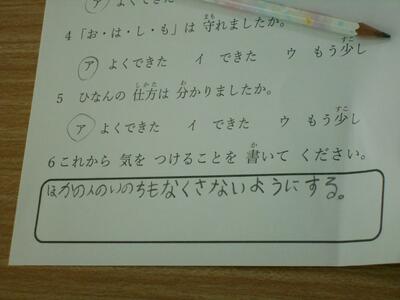 ア よくできた
4「お・は・し・も」は 守れましたか。
ア よくできた イ できた ウ もう少し
5 ひなんの 仕方は 分かりましたか。
ア よくできた イ できた ウ もう少し
6これから 気を つけることを 書いて ください。
ほかの人のいのちもなくさないようにする。